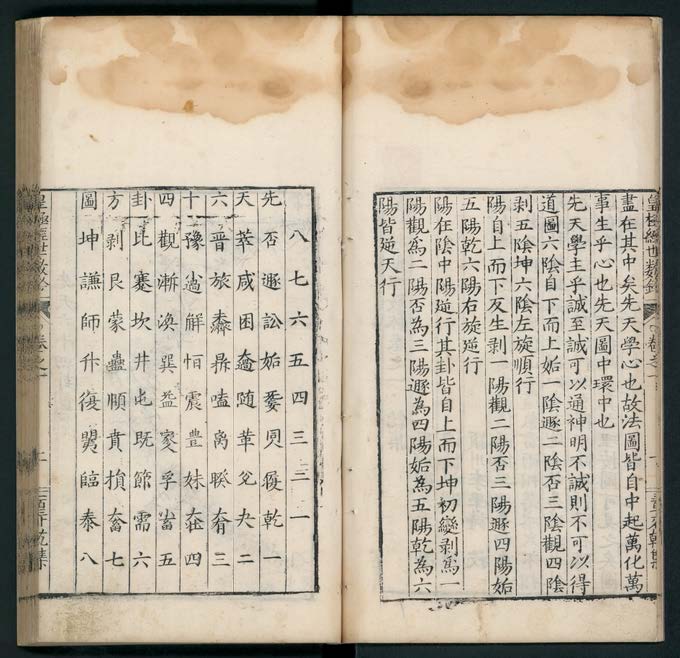 皇極經世數
盡在其中矣先天學心也故法圖皆自中起萬化萬
事生乎心也先天圖中環中也
先天學主乎誠至誠可以通神明不誠則不可以得
道圖六陰自下而上姤一陰遯二陰否三陰觀四陰
剥五陰坤六陰左旋順行
陽自上而下反生剥一陽觀二陽否三陽遯四陽姤
五陽乾六陽右旋逆行
陽在陰中陽逆行其卦皆自上而下坤初變剥爲一
陽觀爲二陽否爲三陽遯為四陽姤為五陽乾為六
陽皆逆天行
八七六五四三二一
先否遯訟姤履乾一
天萃咸困隨革兌夬二
六晋旅鼎嗑离睽三
十豫解恒震豊妹四
四觀漸渙巽益孚五
卦比蹇坎井屯既節需六
方剥艮蒙蠱頤賁損七
圖坤謙師升復臨泰八
皇極經世數 卷之一 二